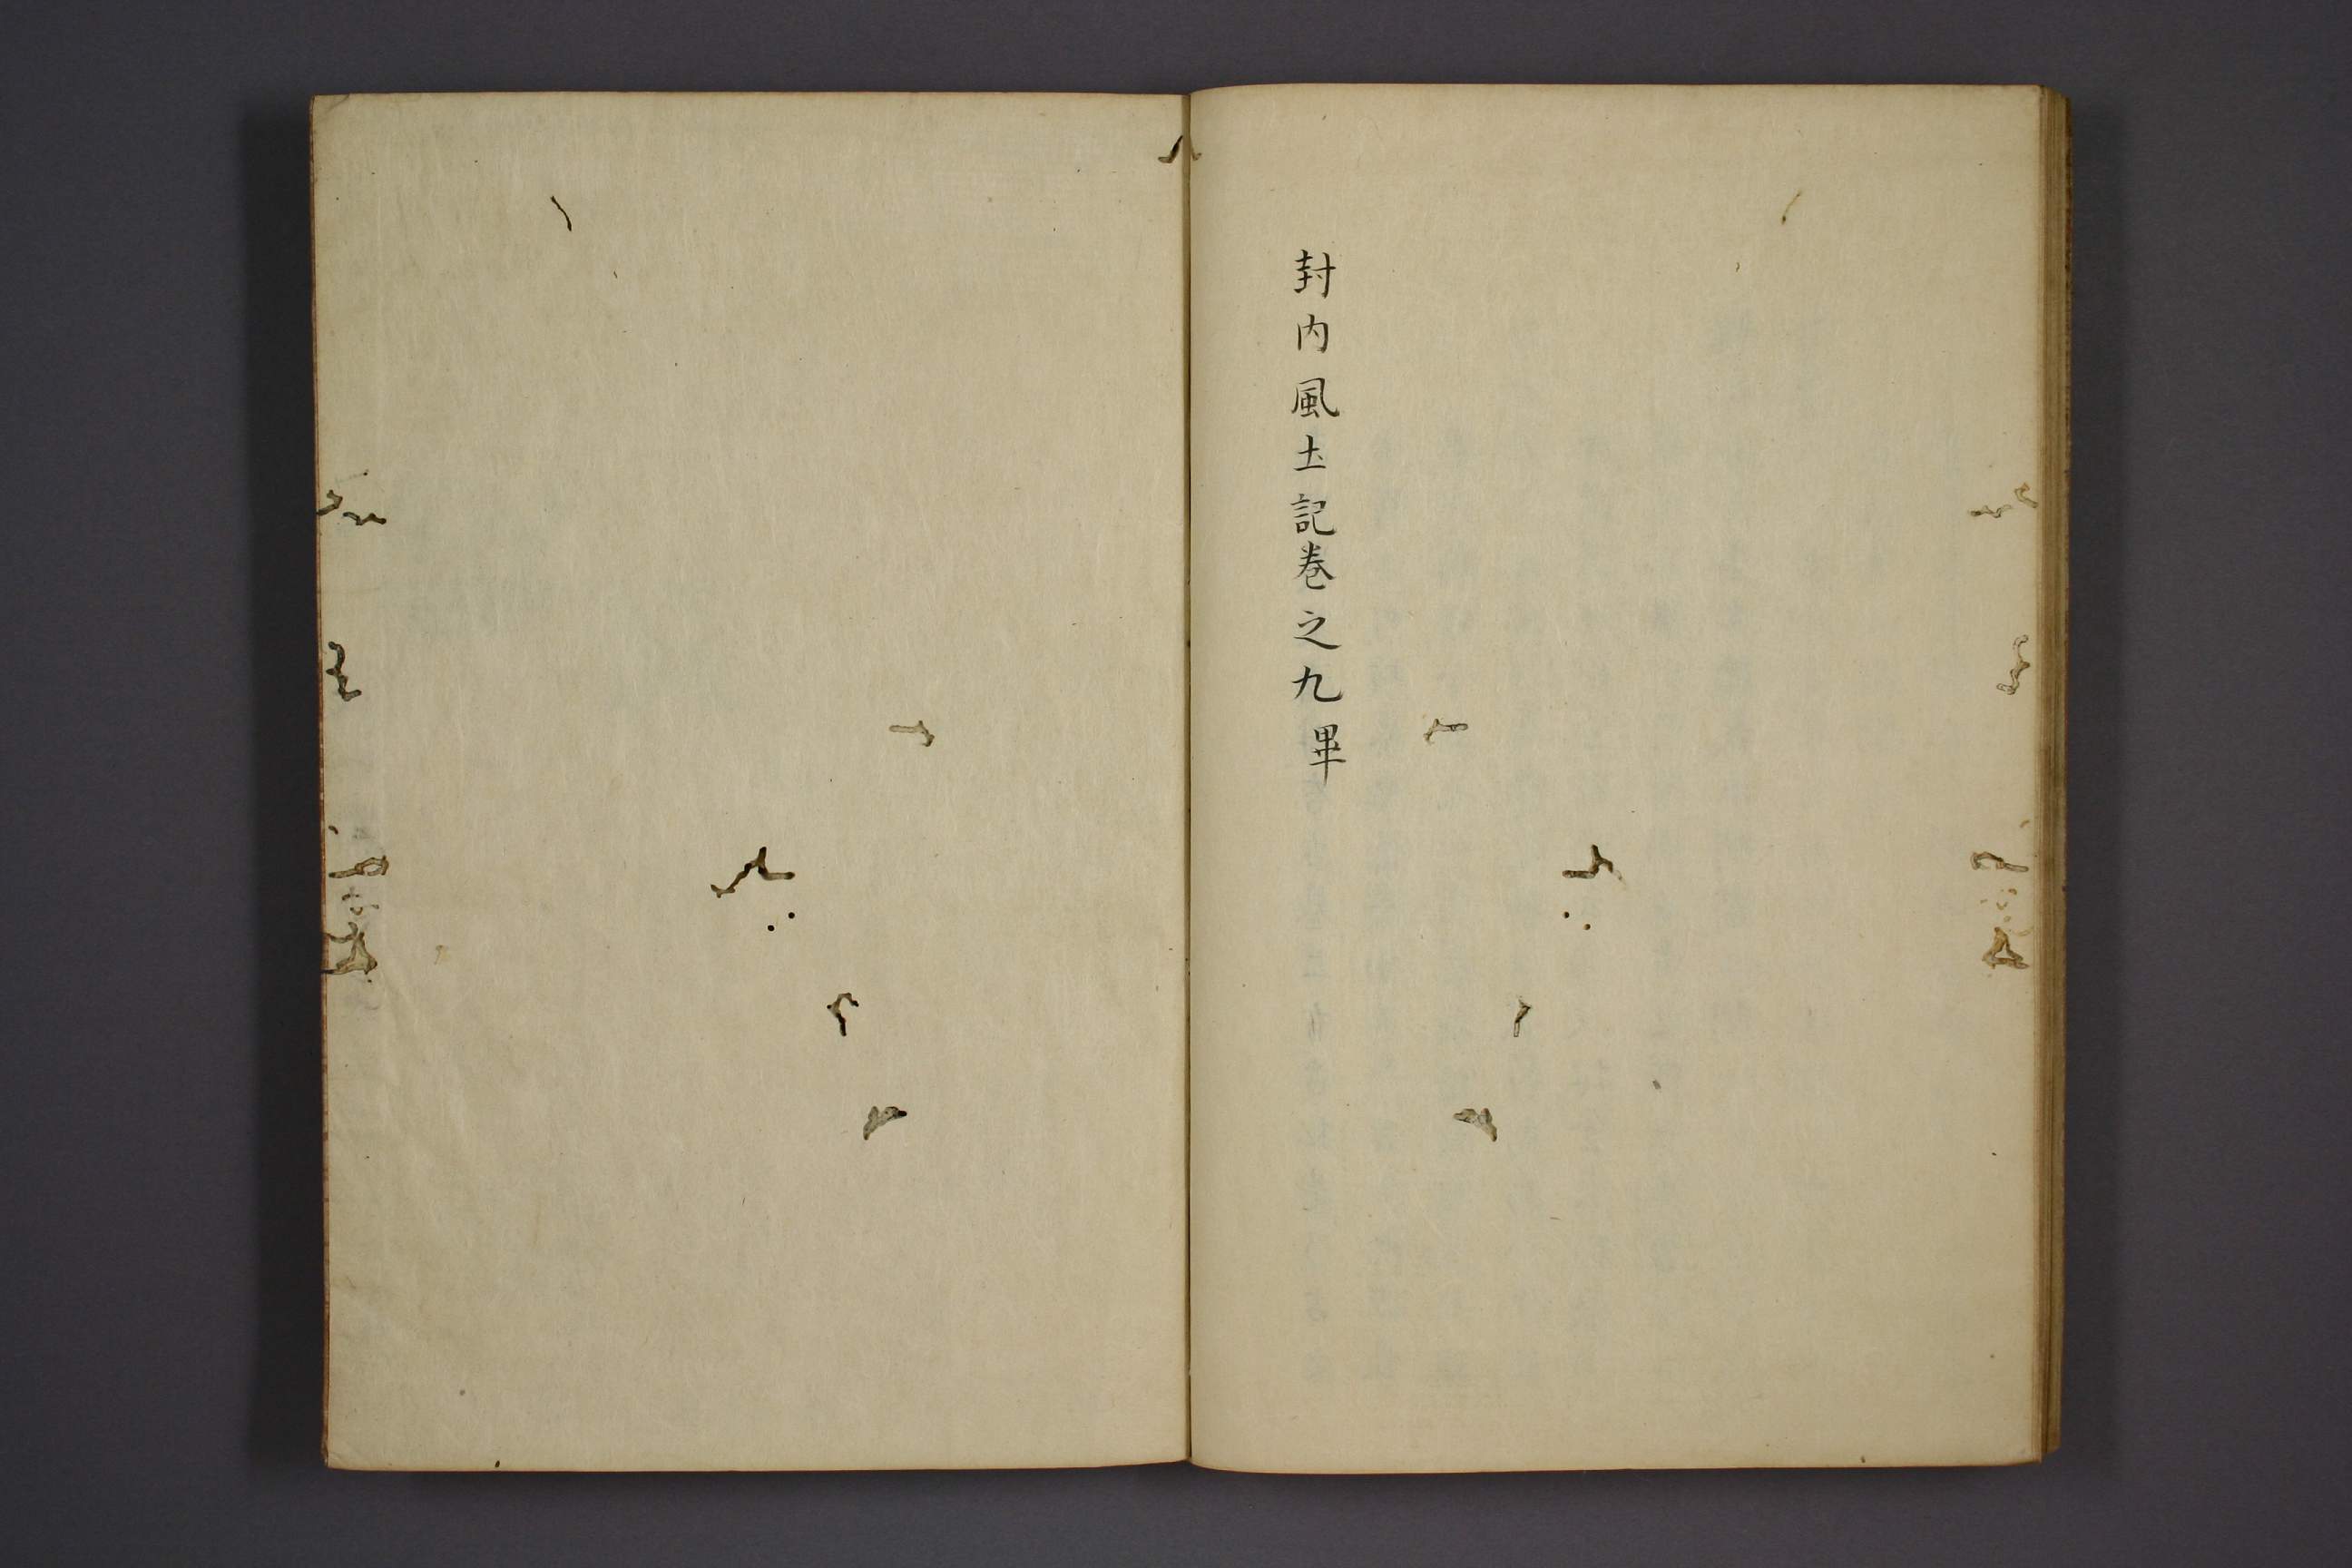 封内風土記巻之九畢